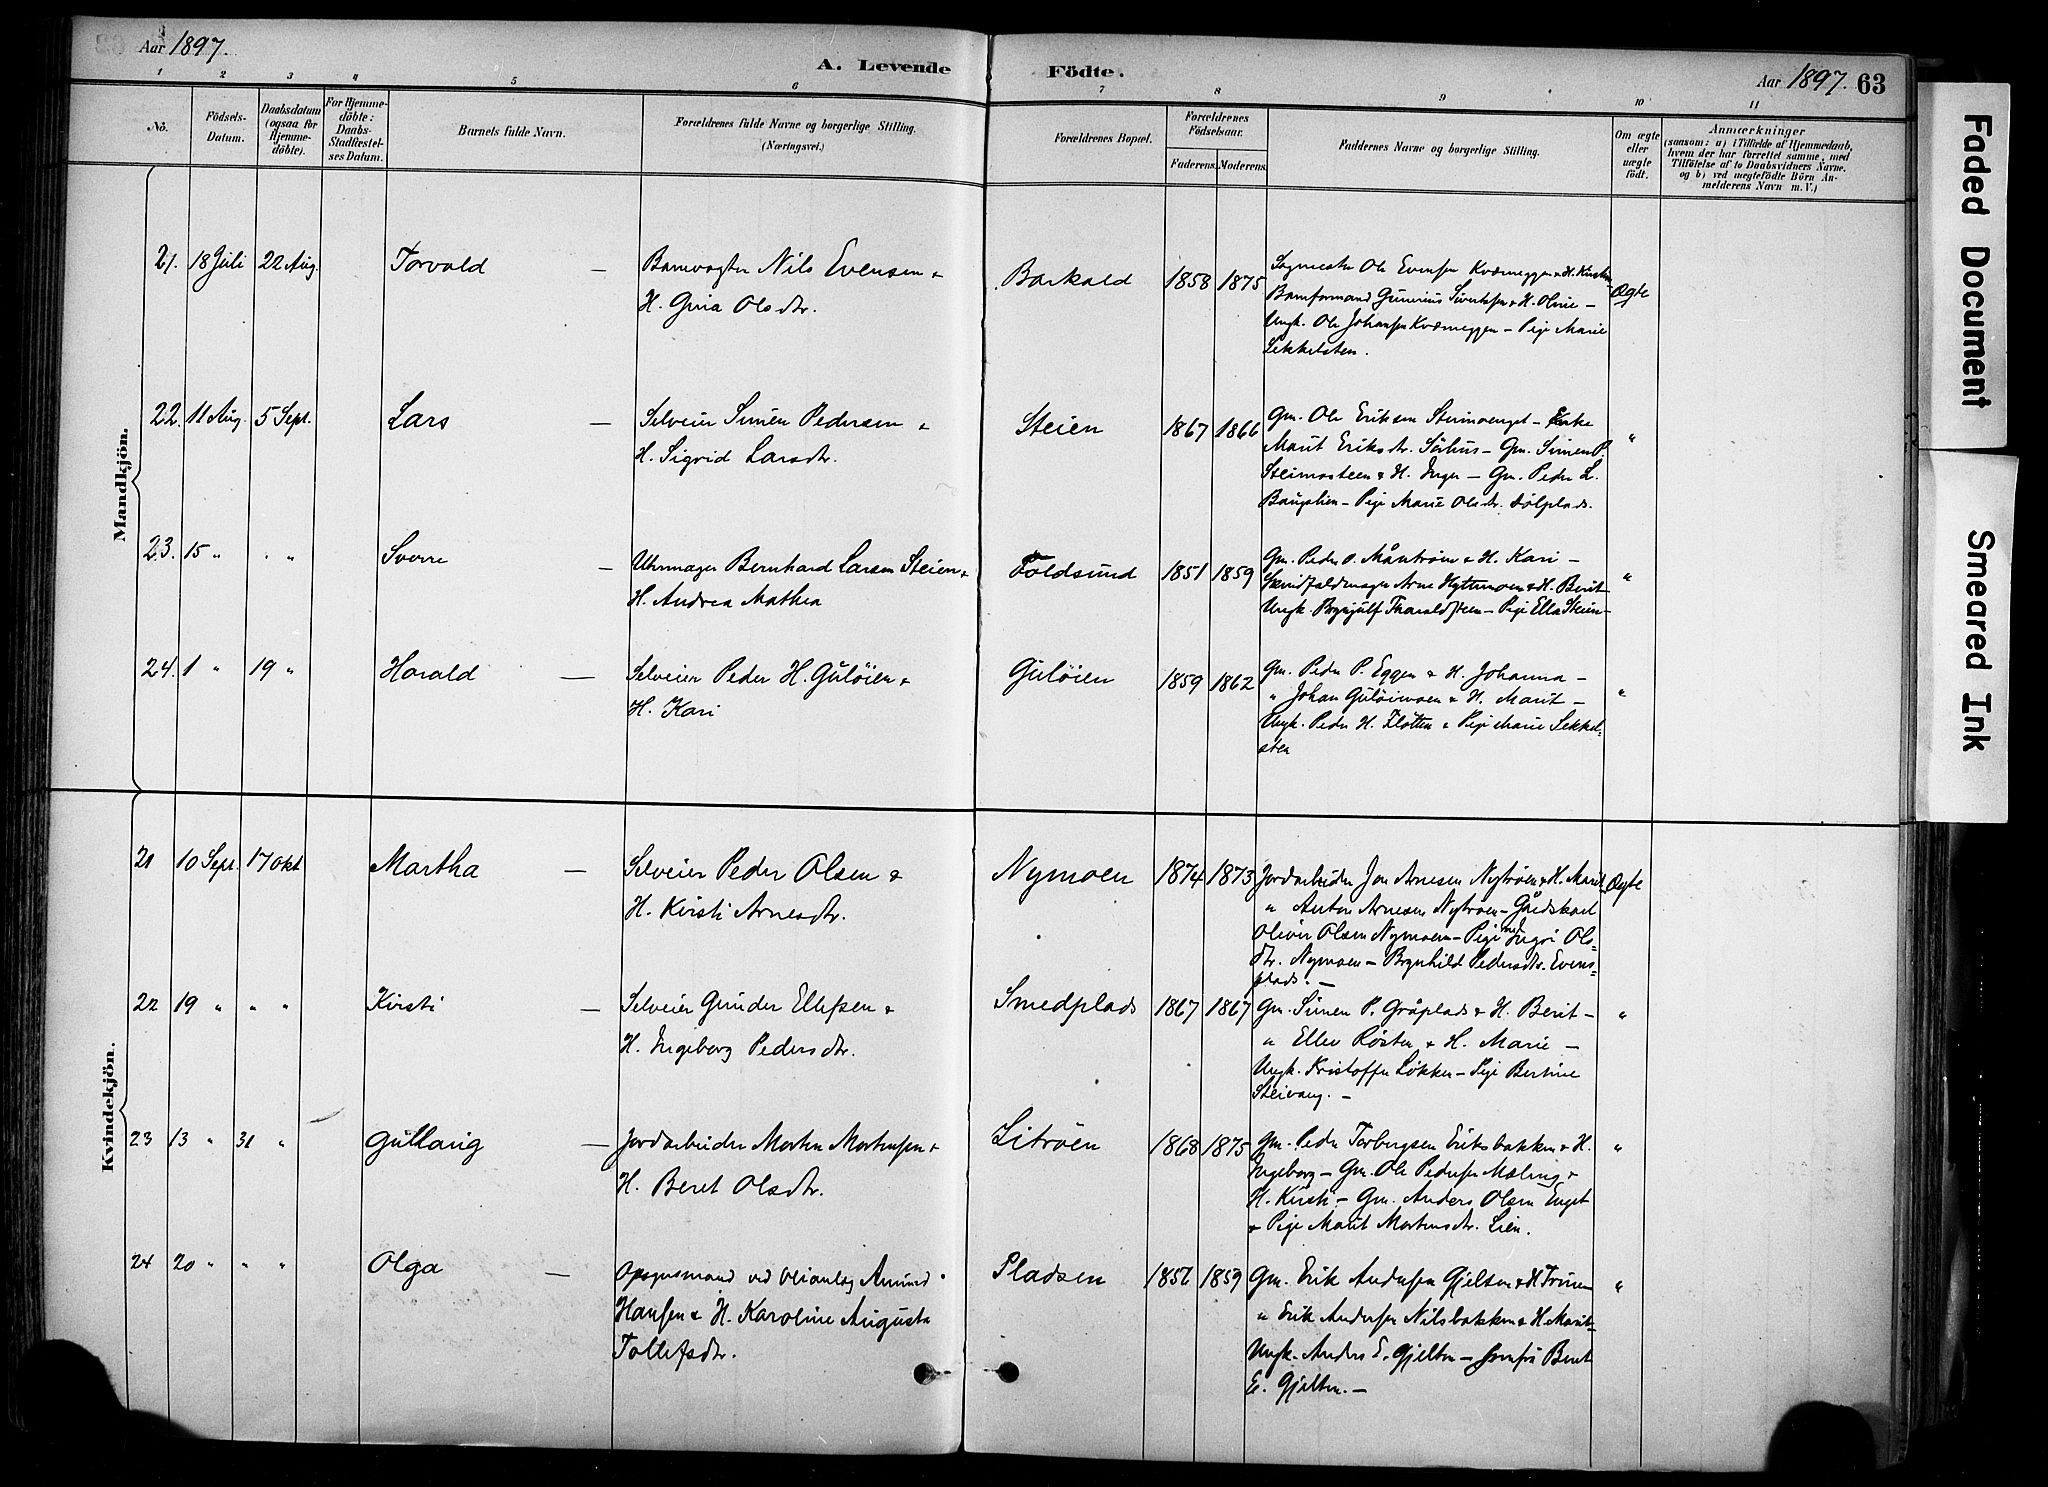 Aar 1897.
A. Levende Födte.
Aar 1897. 63
1 2 3 4 5 6 7 8 9 10 11
No.
Födsels-
Datum.
Daabsdatum
(ogsaa for
Hjemme-
döbte).
For Hjemme-
döbte:
Daabs-
Stadfæstel-
ses Datum.
Barnets fulde Navn.
Forældrenes fulde Navne og borgerlige Stilling.
(Næringsvei.)
Forældrenes Bopæl.
Forældrenes
Födselsaar.
Faderens. Moderens.
Faddernes Navne og borgerlige Stilling.
Om ægte
eller
uægte
født.
Anmærkninger
(saasom: a) i Tilfælde af Hjemmedaab,
hvem der har forrettet samme, med
Tilföielse af to Daabsvidners Navne.
og b) ved uægtefödte Börn An-
melderens Navn m. V.)
Mandkjön.
21. 18 Juli 22 Aug. Torvald —
Banevogter Nils Evensen &
H. Gina Olsdtr.
Barkald 1858 1875
Sagmester Ole Evensen Kværneggen & H. Kirstine
Baneformand Gunerius Sivertsen & H. Oline —
Ungk. Ole Johansen Kværneggen — Pige Marie
Lekkelsten.
Ægte
22. 11 Aug. 5 Sept. Lars —
Selveier Simen Pedersen &
H. Sigrid Larsdtr.
Steien 1867 1866
Gm. Ole Eriksen Steimoenget — Enke
Marit Eriksdtr. Sörhus — Gm. Simen P.
Steimosteen & H. Inger — Gm. Peder L.
Baugslien — Pige Marie Olsdtr. Sölplads.
"
23. 15 " " " Sverre —
Uhrmager Bernhard Larsen Steien &
H. Andrea Mathea
Foldsund 1851 1859
Gm. Peder O. Måntrøen & H. Kari —
Skindfeldmager Arne Hyttemoen & H. Berit
Ungk. Brynjulf Tharaldsteen — Pige Ella Steien —
"
24. 1 " 19 " Harald —
Selveier Peder H. Gulöien &
H. Kari
Gulöien 1859 1862
Gm. Peder P. Eggen & H. Johanna —
" Johan Gulöimoen & H. Marit —
Ungk. Peder H. Fløtten & Pige Marie Lekkel-
sten
"
Kvindekjön.
21 10 Sept. 17 Okt Martha —
Selveier Peder Olsen &
H. Kirsti Arnesdtr.
Nymoen 1874 1873
Jordarbeider Jon Arnesen Nytrøen & H. Marit
" Anton Arnesen Nytrøen — Gårdskarl
Oliver Olsen Nymoen — Pige Ingri Ols-
dtr. Nymoen — Brynhild Pedersdtr. Evens-
plads. —
Ægte
22 19 " " " Kirsti —
Selveier Gunder Ellefsen &
H. Ingeborg Pedersdtr.
Smedplads 1867 1867
Gm. Simen P. Gråplads & H. Berit —
" Ellev Røsten & H. Marie —
Ungk. Kristoffer Løkken — Pige Bertine
Steivang. —
"
23 13 " 31 " Gullaug —
Jordarbeider Morten Mortensen &
H. Beret Olsdtr.
Litröen 1868 1875
Gm. Peder Torbergsen Eriksbakken & H.
Ingeborg — Gm. Ole Pedersen Mæling &
H. Kirsti — Gm. Anders Olsen Enget
& Pige Marit Mortensdtr. Lien.
"
24 20 " " " Olga —
Opsynsmand ved Veianlæg Amund
Hansen & H. Karoline Augusta
Tollefsdtr.
Pladsen 1856 1859
Gm. Erik Andersen Gjelten & H. Trinen
" Erik Andersen Nilsbakken & H. Marit —
Ungk. Anders E. Gjelten — Jomfru Beret
E. Gjelten. —
"
Faded Document
Smeared Ink